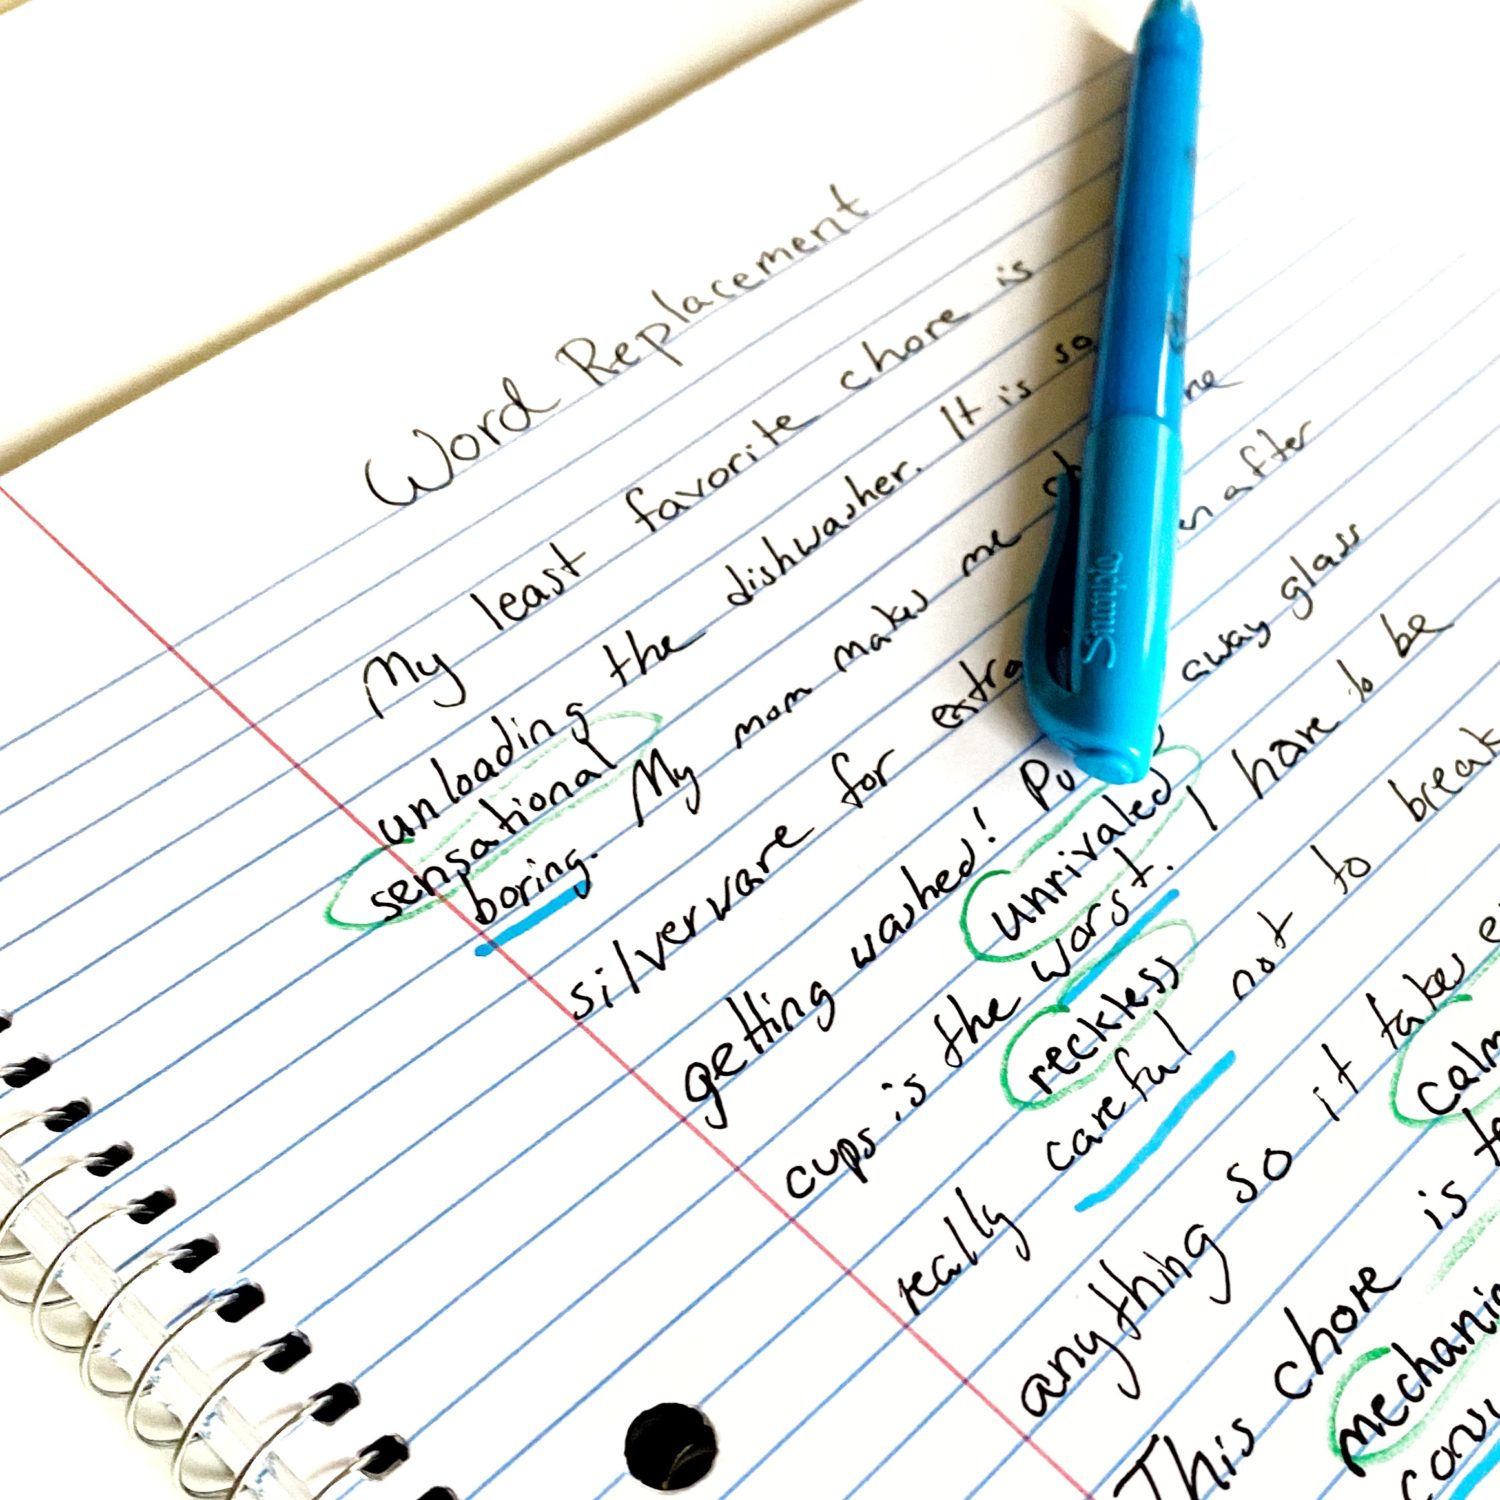 Word Replacement
My least favorite chore is
unloading the dishwasher. It is so
sensational
boring. My mom makes me
silverware for extra after
getting washed! away glass
unrivaled
cups is the worst. I have to be
reckless
really careful not to break
anything so it takes
calm
This chore is
Sharpie